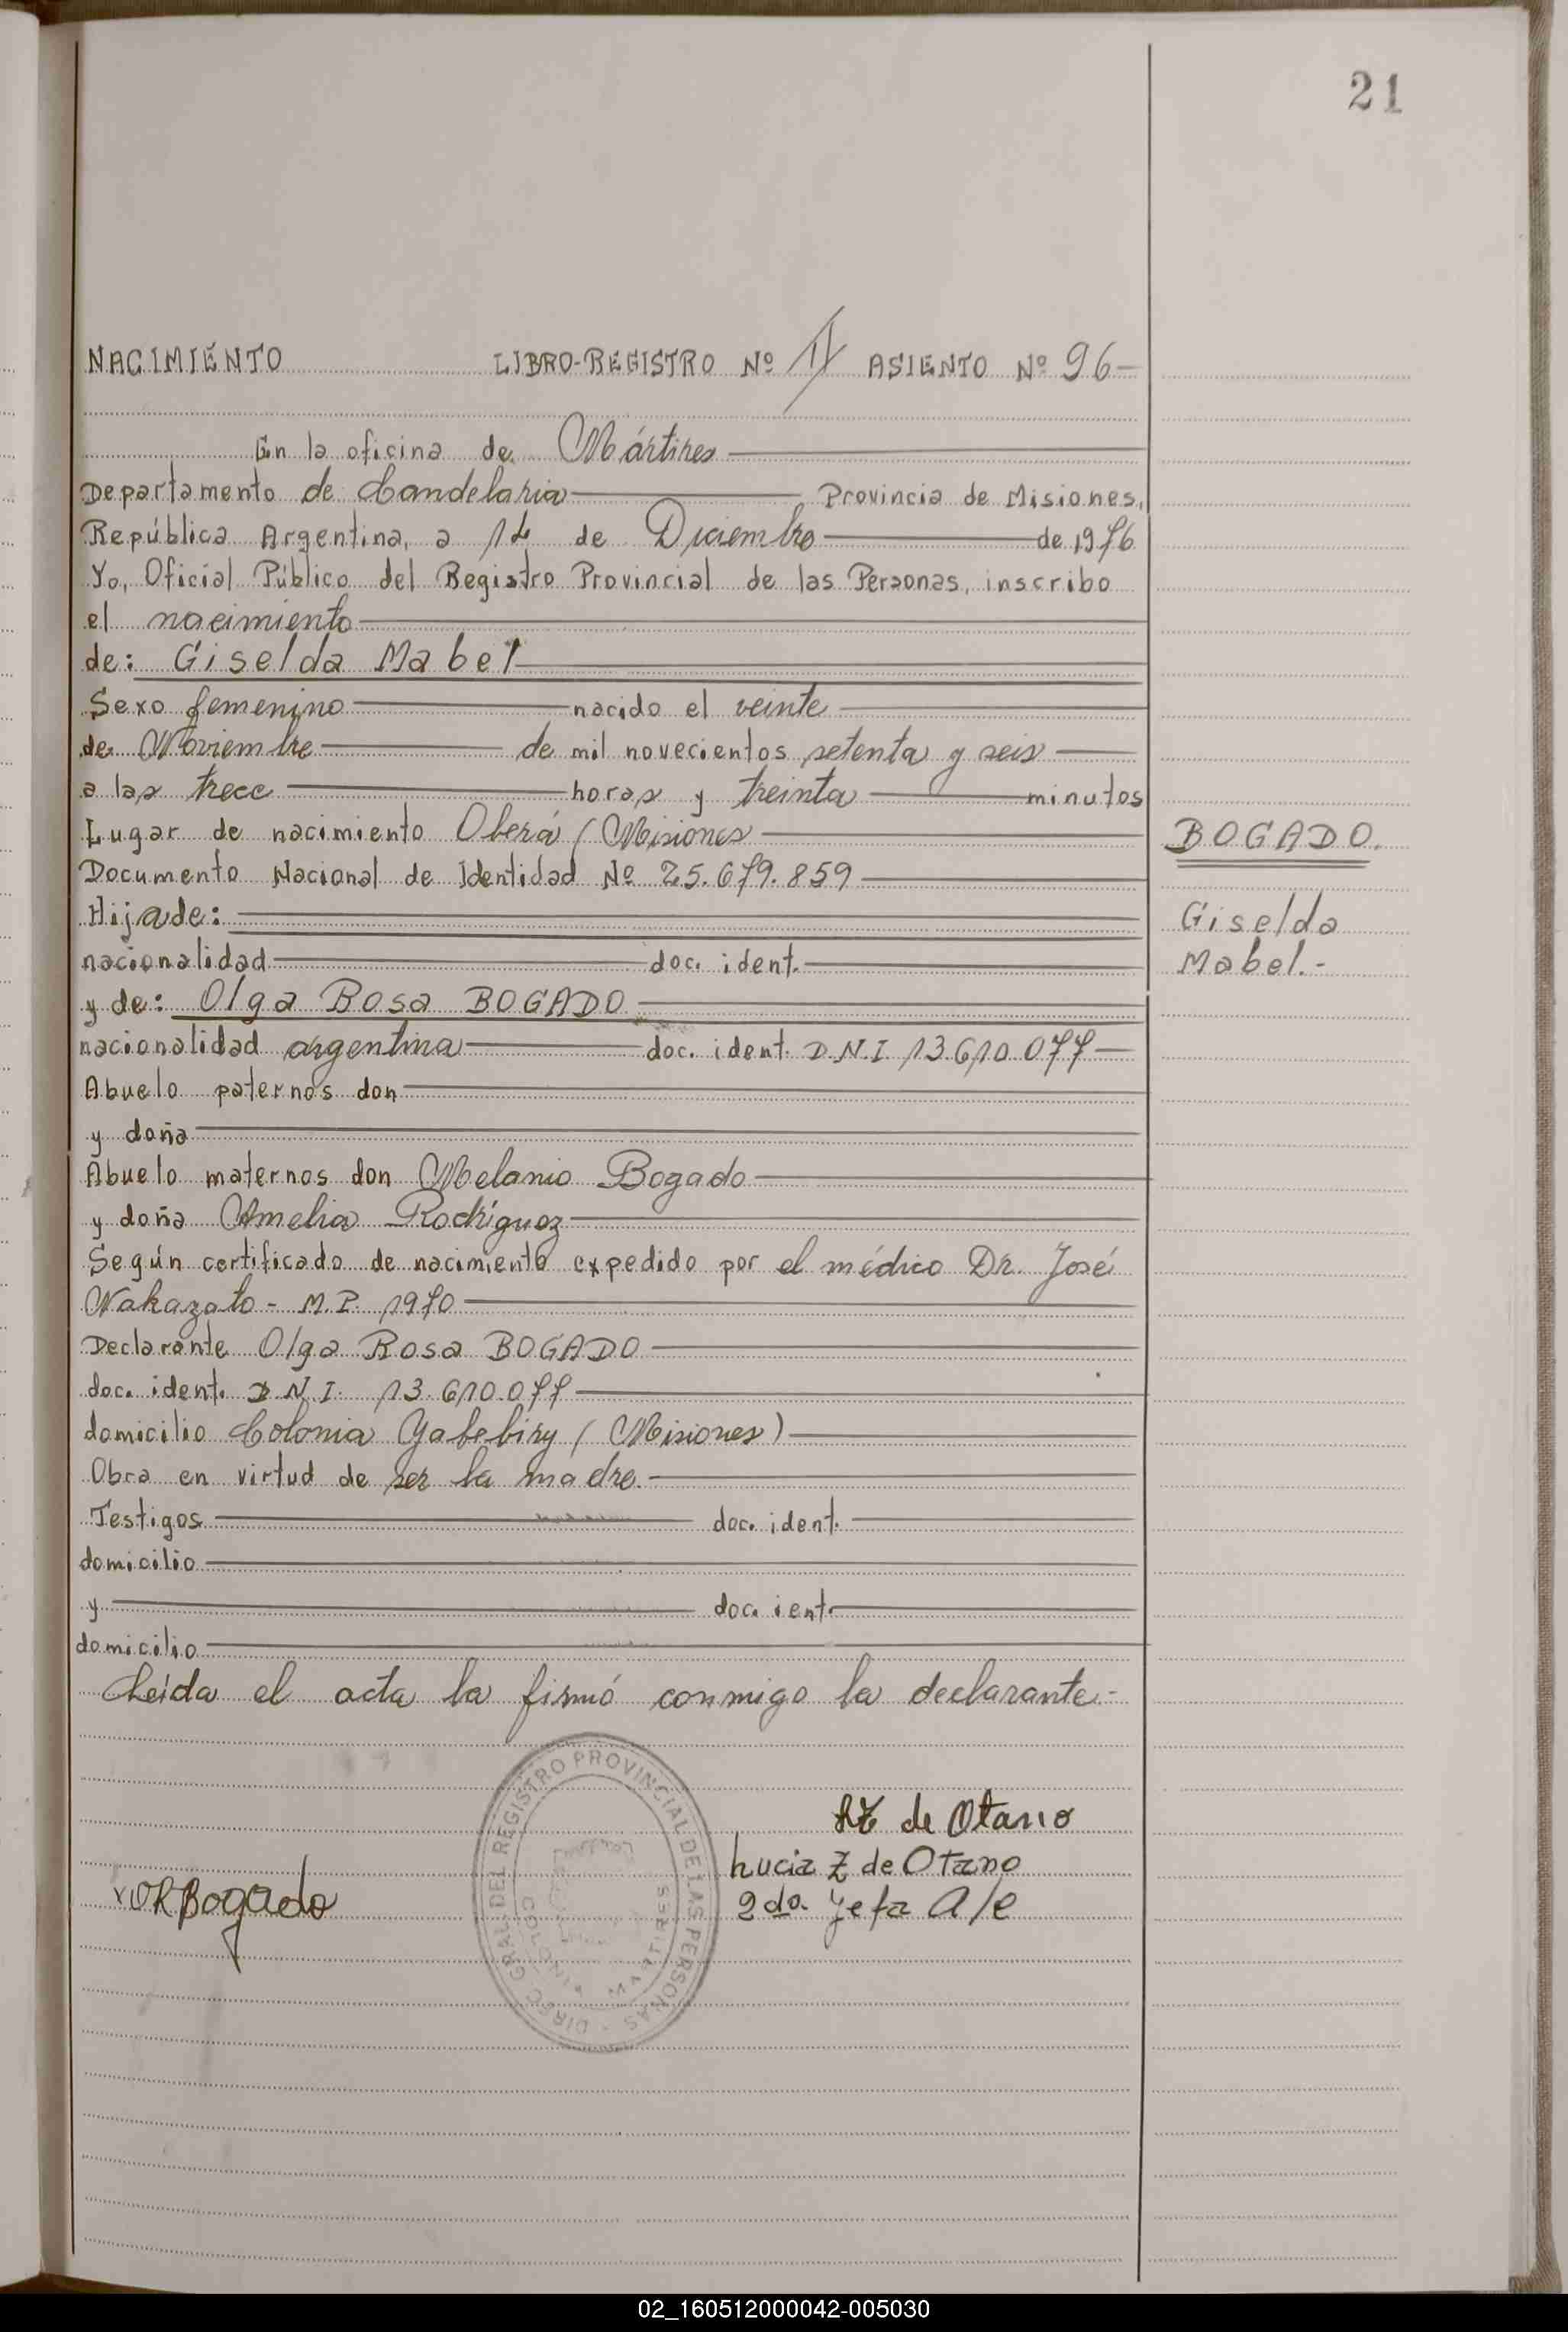 21
NACIMIENTO LIBRO-REGISTRO Nº II ASIENTO Nº 96-
En la oficina de Mártires
Departamento de Candelaria Provincia de Misiones,
República Argentina, a 14 de Diciembre de 1976
Yo, Oficial Público del Registro Provincial de las Personas, inscribo
el nacimiento
de: Giselda Mabel
Sexo femenino nacido el veinte
de Noviembre de mil novecientos setenta y seis
a las trece horas y treinta minutos
Lugar de nacimiento Oberá (Misiones
Documento Nacional de Identidad Nº 25.679.859
Hija de:
nacionalidad doc. ident.
y de: Olga Rosa BOGADO
nacionalidad argentina doc. ident. D.N.I. 13.610.077
Abuelo paternos don
y doña
Abuelo maternos don Melanio Bogado
y doña Amelia Rodríguez
Según certificado de nacimiento expedido por el médico Dr. José
Nakazato - M.P. 1970
Declarante Olga Rosa BOGADO
doc. ident. D.N.I. 13.610.077
domicilio Colonia Yabebiry (Misiones)
Obra en virtud de ser la madre.
Testigos doc. ident.
domicilio
y doc. ient.
domicilio
Leída el acta la firmó conmigo la declarante.-
BOGADO.
Giselda
Mabel.-
LZ de Otano
Lucia Z de Otano
2da. Jefa A/c
x ORBogado
DIREC. GRAL. DEL REGISTRO PROVINCIAL DE LAS PERSONAS -
COLONIA MARTIRES
02_160512000042-005030